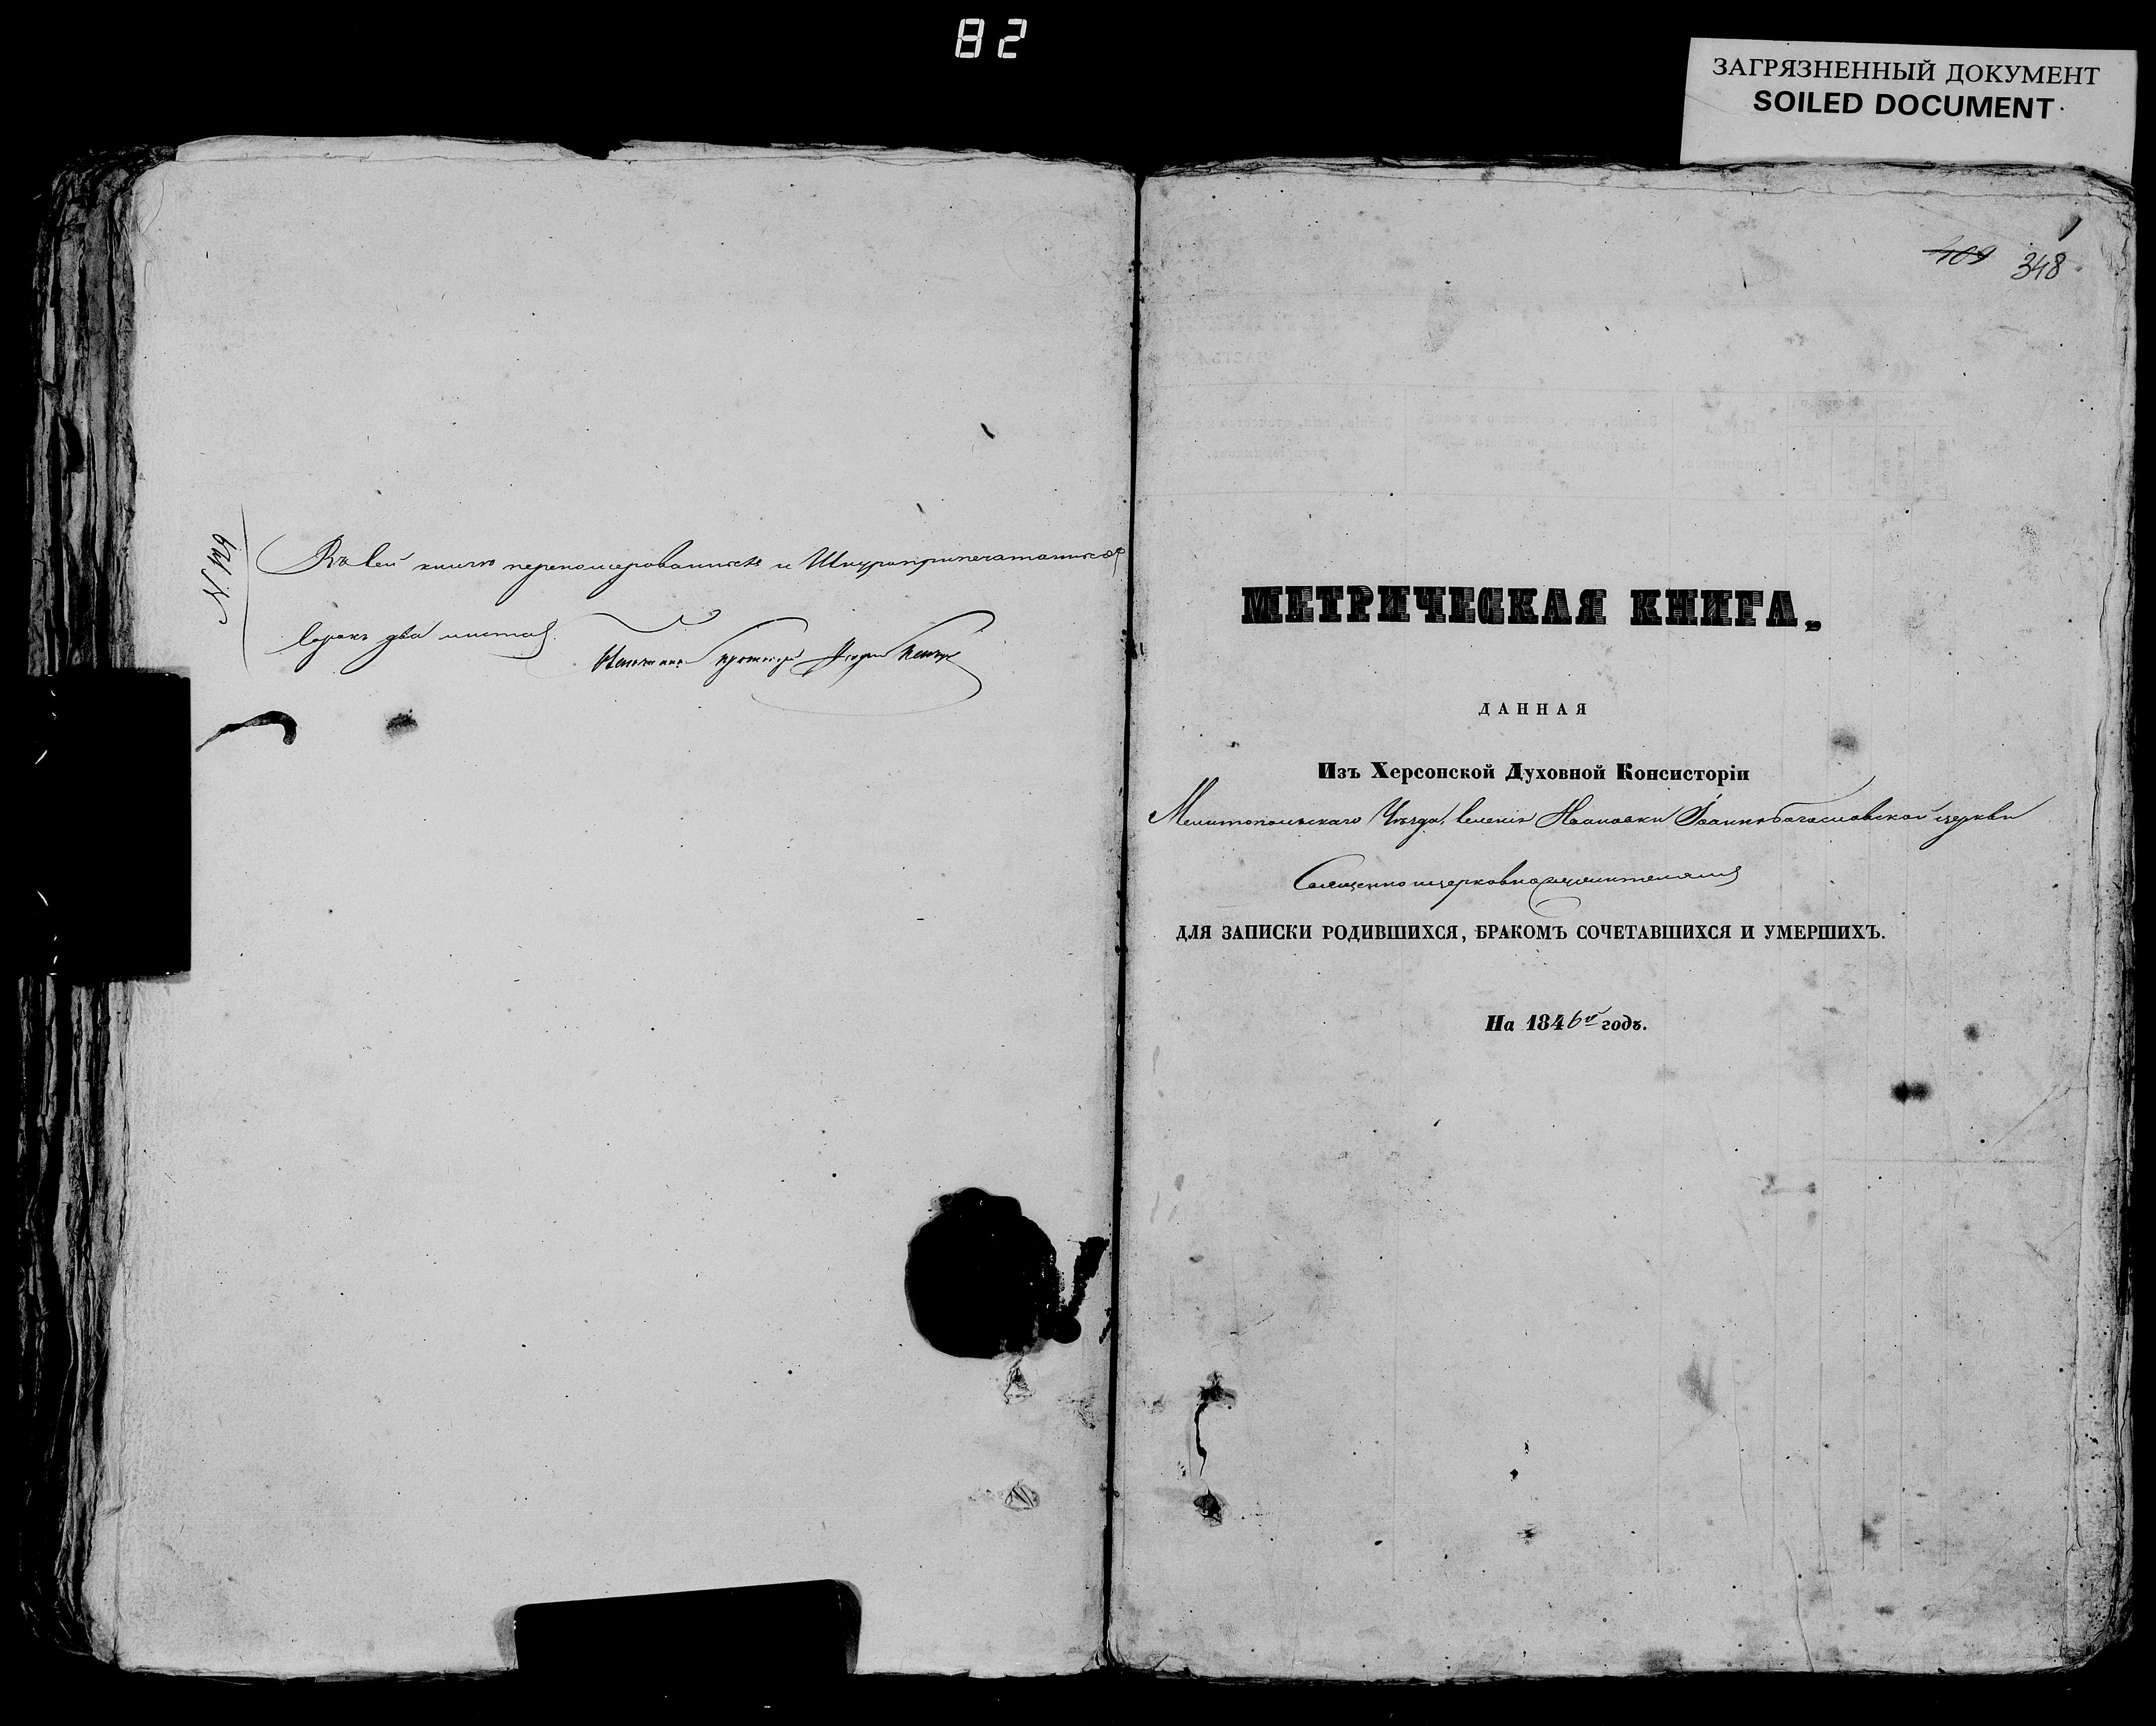 82
ЗАГРЯЗНЕННЫЙ ДОКУМЕНТ
SOILED DOCUMENT
N. 129
Въ сей книгѣ перенумерованныхъ и Шнуроприпечатанныхъ
Сорокъ два листа
348
МЕТРИЧЕСКАЯ КНИГА,
ДАННАЯ
Изъ Херсонской Духовной Консисторіи
Мелитопольскаго Уѣзда, селенія Ивановки Іоанно-Богословской церкви
Священноицерковнослужителямъ
ДЛЯ ЗАПИСКИ РОДИВШИХСЯ, БРАКОМЪ СОЧЕТАВШИХСЯ И УМЕРШИХЪ.
На 1846й годъ.